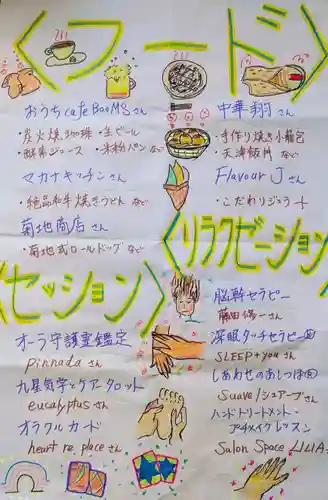 〈フード〉
おうちcafe BooMSさん
・炭火焼き珈琲 ・生ビール
・酵素ジュース ・米粉パン など
マカナキッチンさん
・絶品和牛焼きうどん など
菊地商店さん
・菊地式ロールドッグ など
中華 翔さん
・手作り焼き小籠包
・天津飯 など
Flavour Jさん
・こだわりジェラート
〈セッション〉
オーラ守護霊鑑定
pinnadaさん
九星気学・ケアタロット
eucalyptusさん
オラクルカード
heart re.placeさん
〈リラクゼーション〉
脳幹セラピー
藤田 陽一さん
深眠タッチセラピー
SLEEP+youさん
しあわせのあしつぼ
Suave/シュアーブさん
ハンドトリートメント・
アイメイクレッスン
Salon Space LILIA